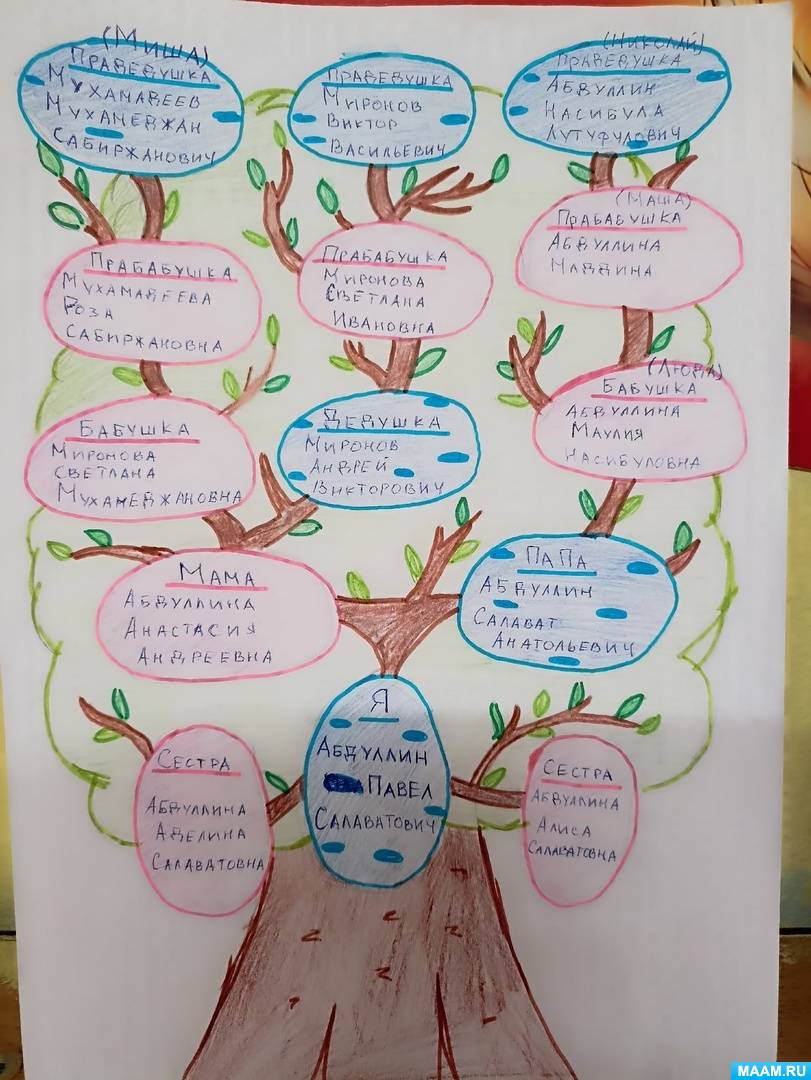 (Миша)
Прадедушка
Мухамадеев
Мухамеджан
Сабиржанович
Прадедушка
Миронов
Виктор
Васильевич
(Николай)
Прадедушка
Абдуллин
Насибула
Лутуфулович
Прабабушка
Мухамадеева
Роза
Сабиржановна
Прабабушка
Миронова
Светлана
Ивановна
(Маша)
Прабабушка
Абдуллина
Мадина
Бабушка
Миронова
Светлана
Мухамеджановна
Дедушка
Миронов
Андрей
Викторович
(Люда)
Бабушка
Абдуллина
Маулия
Насибуловна
Мама
Абдуллина
Анастасия
Андреевна
Папа
Абдуллин
Салават
Анатольевич
Сестра
Абдуллина
Аделина
Салаватовна
Я
Абдуллин
Павел
Салаватович
Сестра
Абдуллина
Алиса
Салаватовна
MAAM.RU